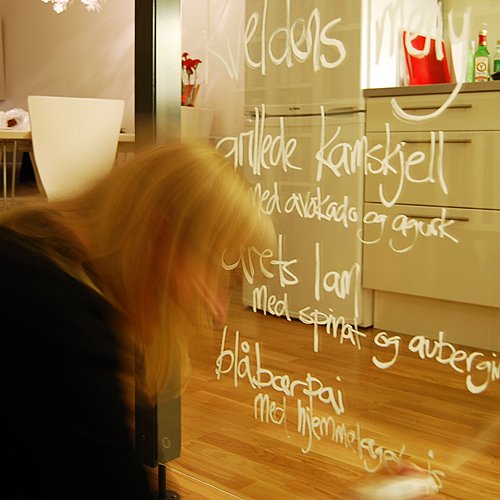 kveldens meny
grillede kamskjell
med avokado og agurk
årets lam
med spinat og aubergin
blåbærpai
med hjemmelaget is